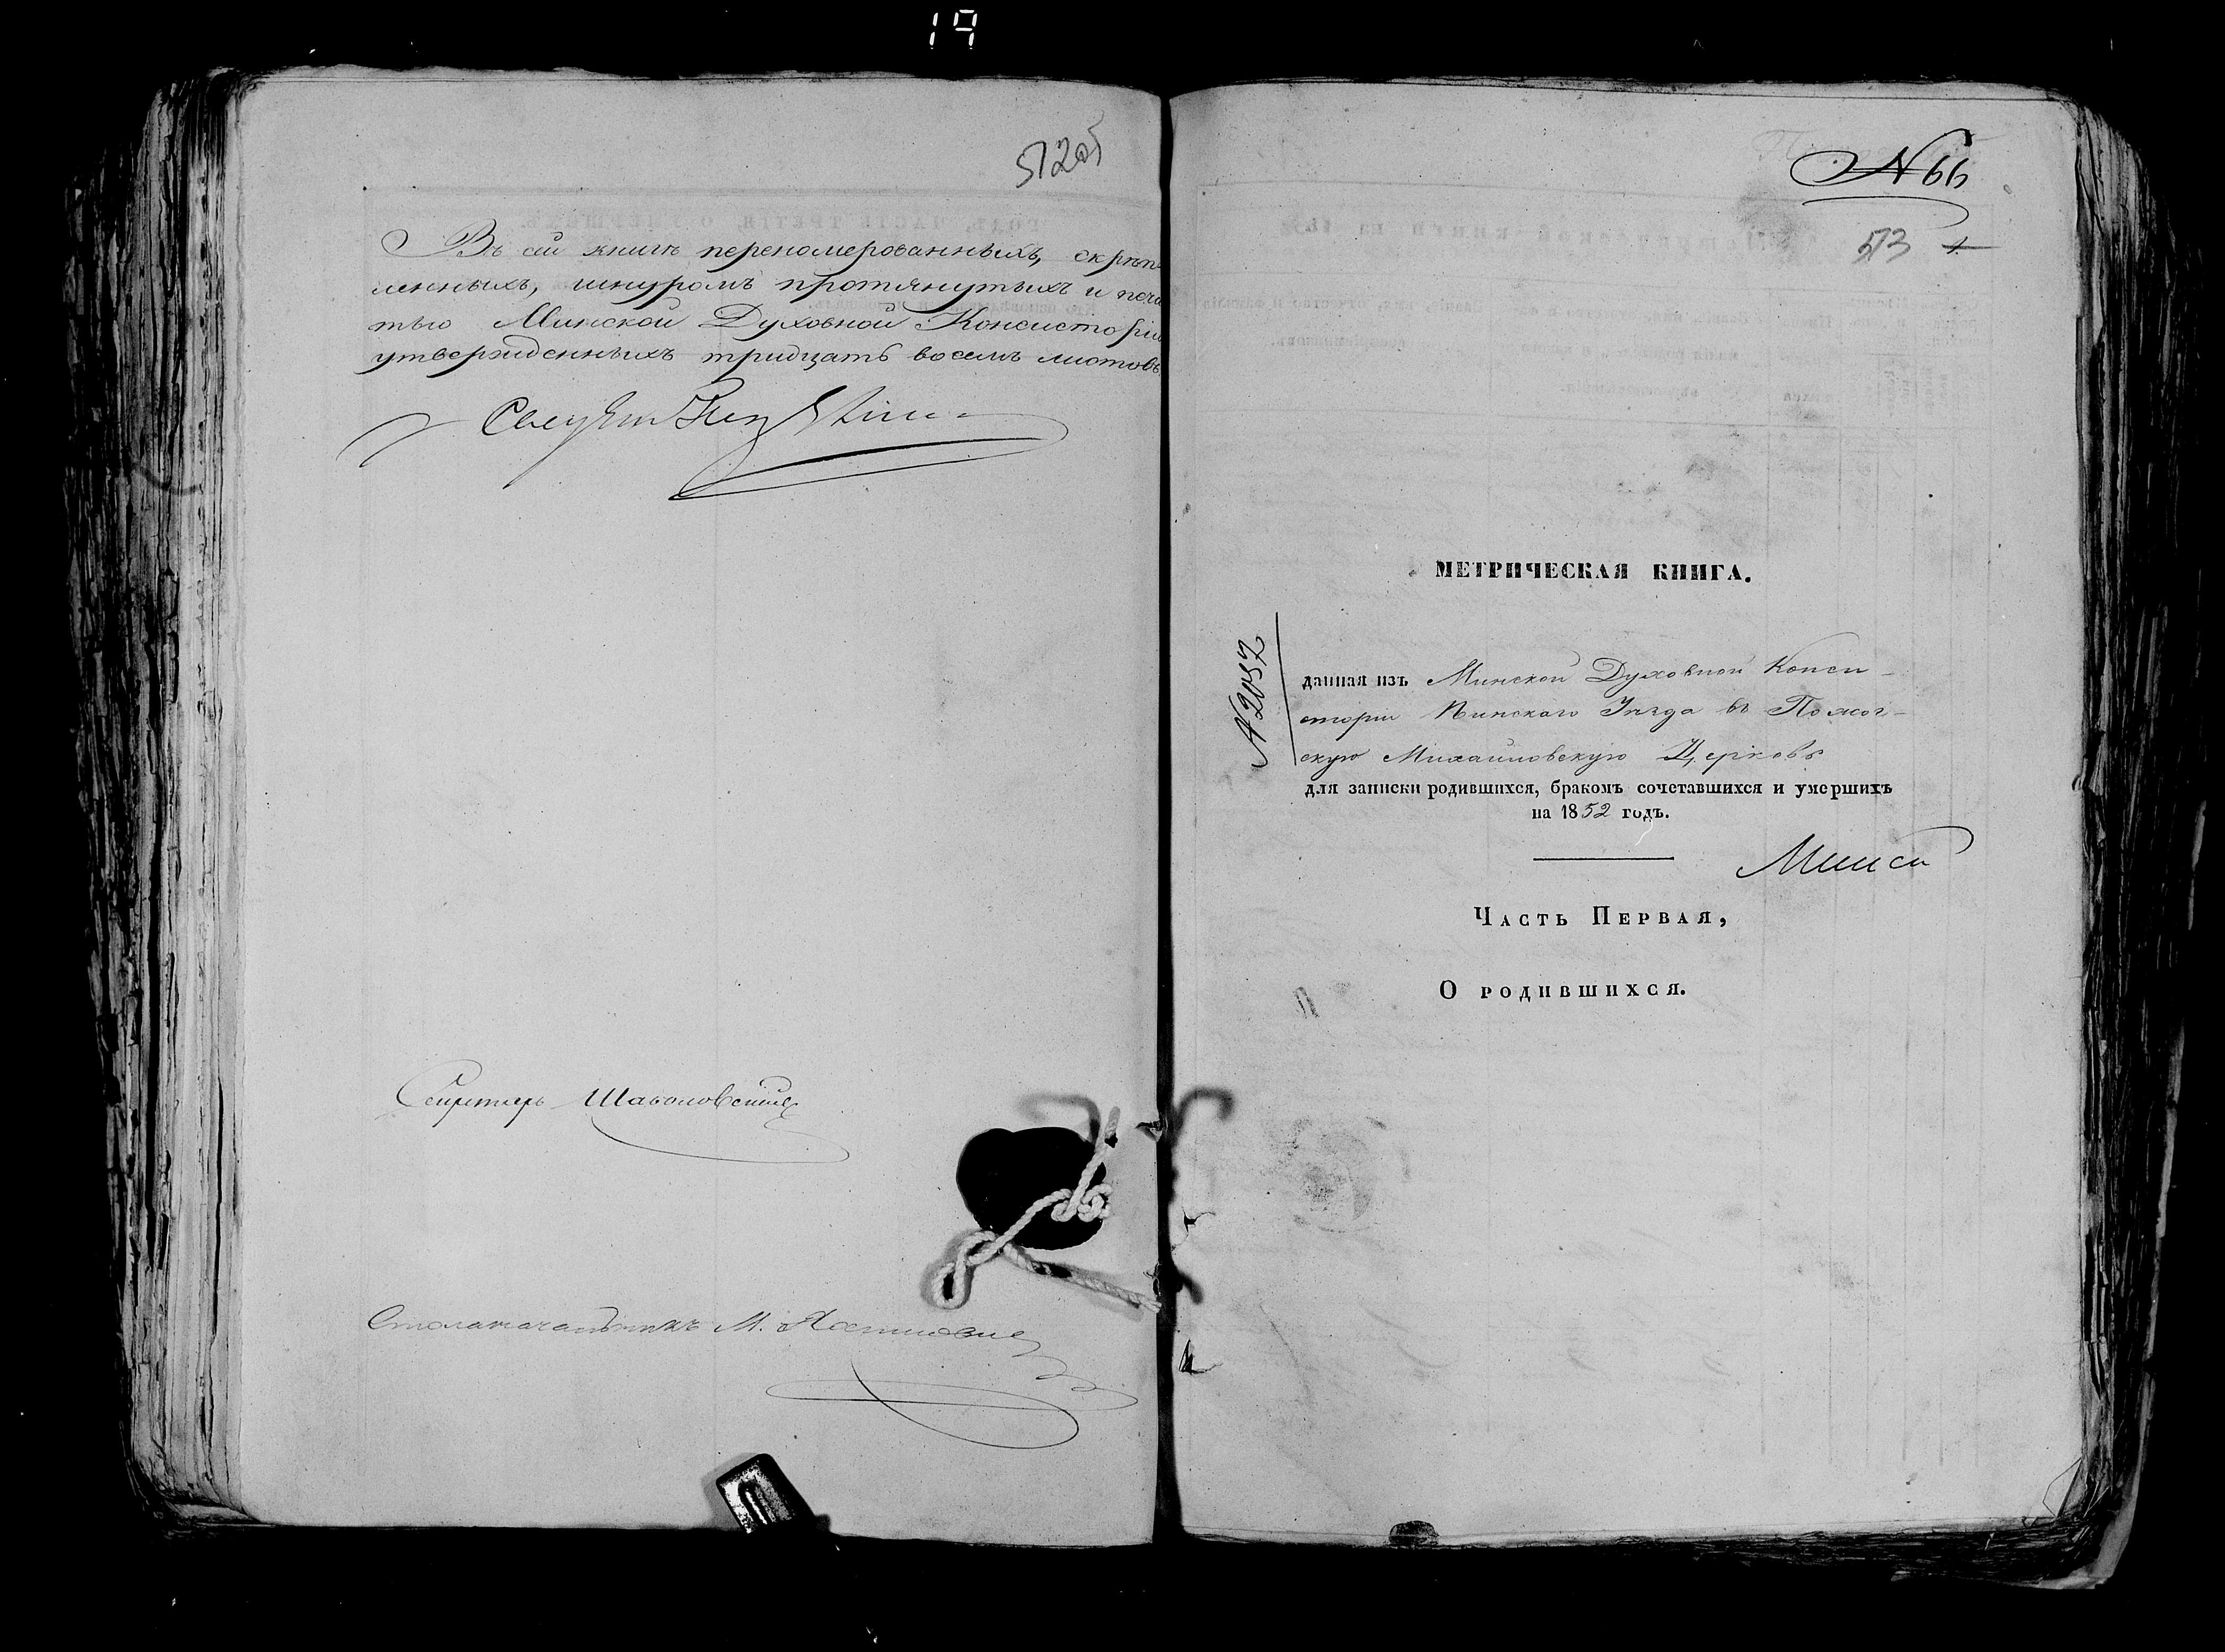 19
512об
Въ сей книгѣ переномерованныхъ, скрѣп
ленныхъ, шнуромъ протянутыхъ и печа
тью Минской Духовной Консисторіи
утвержденныхъ тридцать восемь листовъ
Секретарь
Столоначальникъ М.
N 66
513
МЕТРИЧЕСКАЯ КНИГА.
N 2037
данная изъ Минской Духовной Конси-
сторіи Пинскаго Уѣзда въ
скую Михайловскую Церковь
для записки родившихся, бракомъ сочетавшихся и умершихъ
на 1852 годъ.
Часть Первая,
О родившихся.